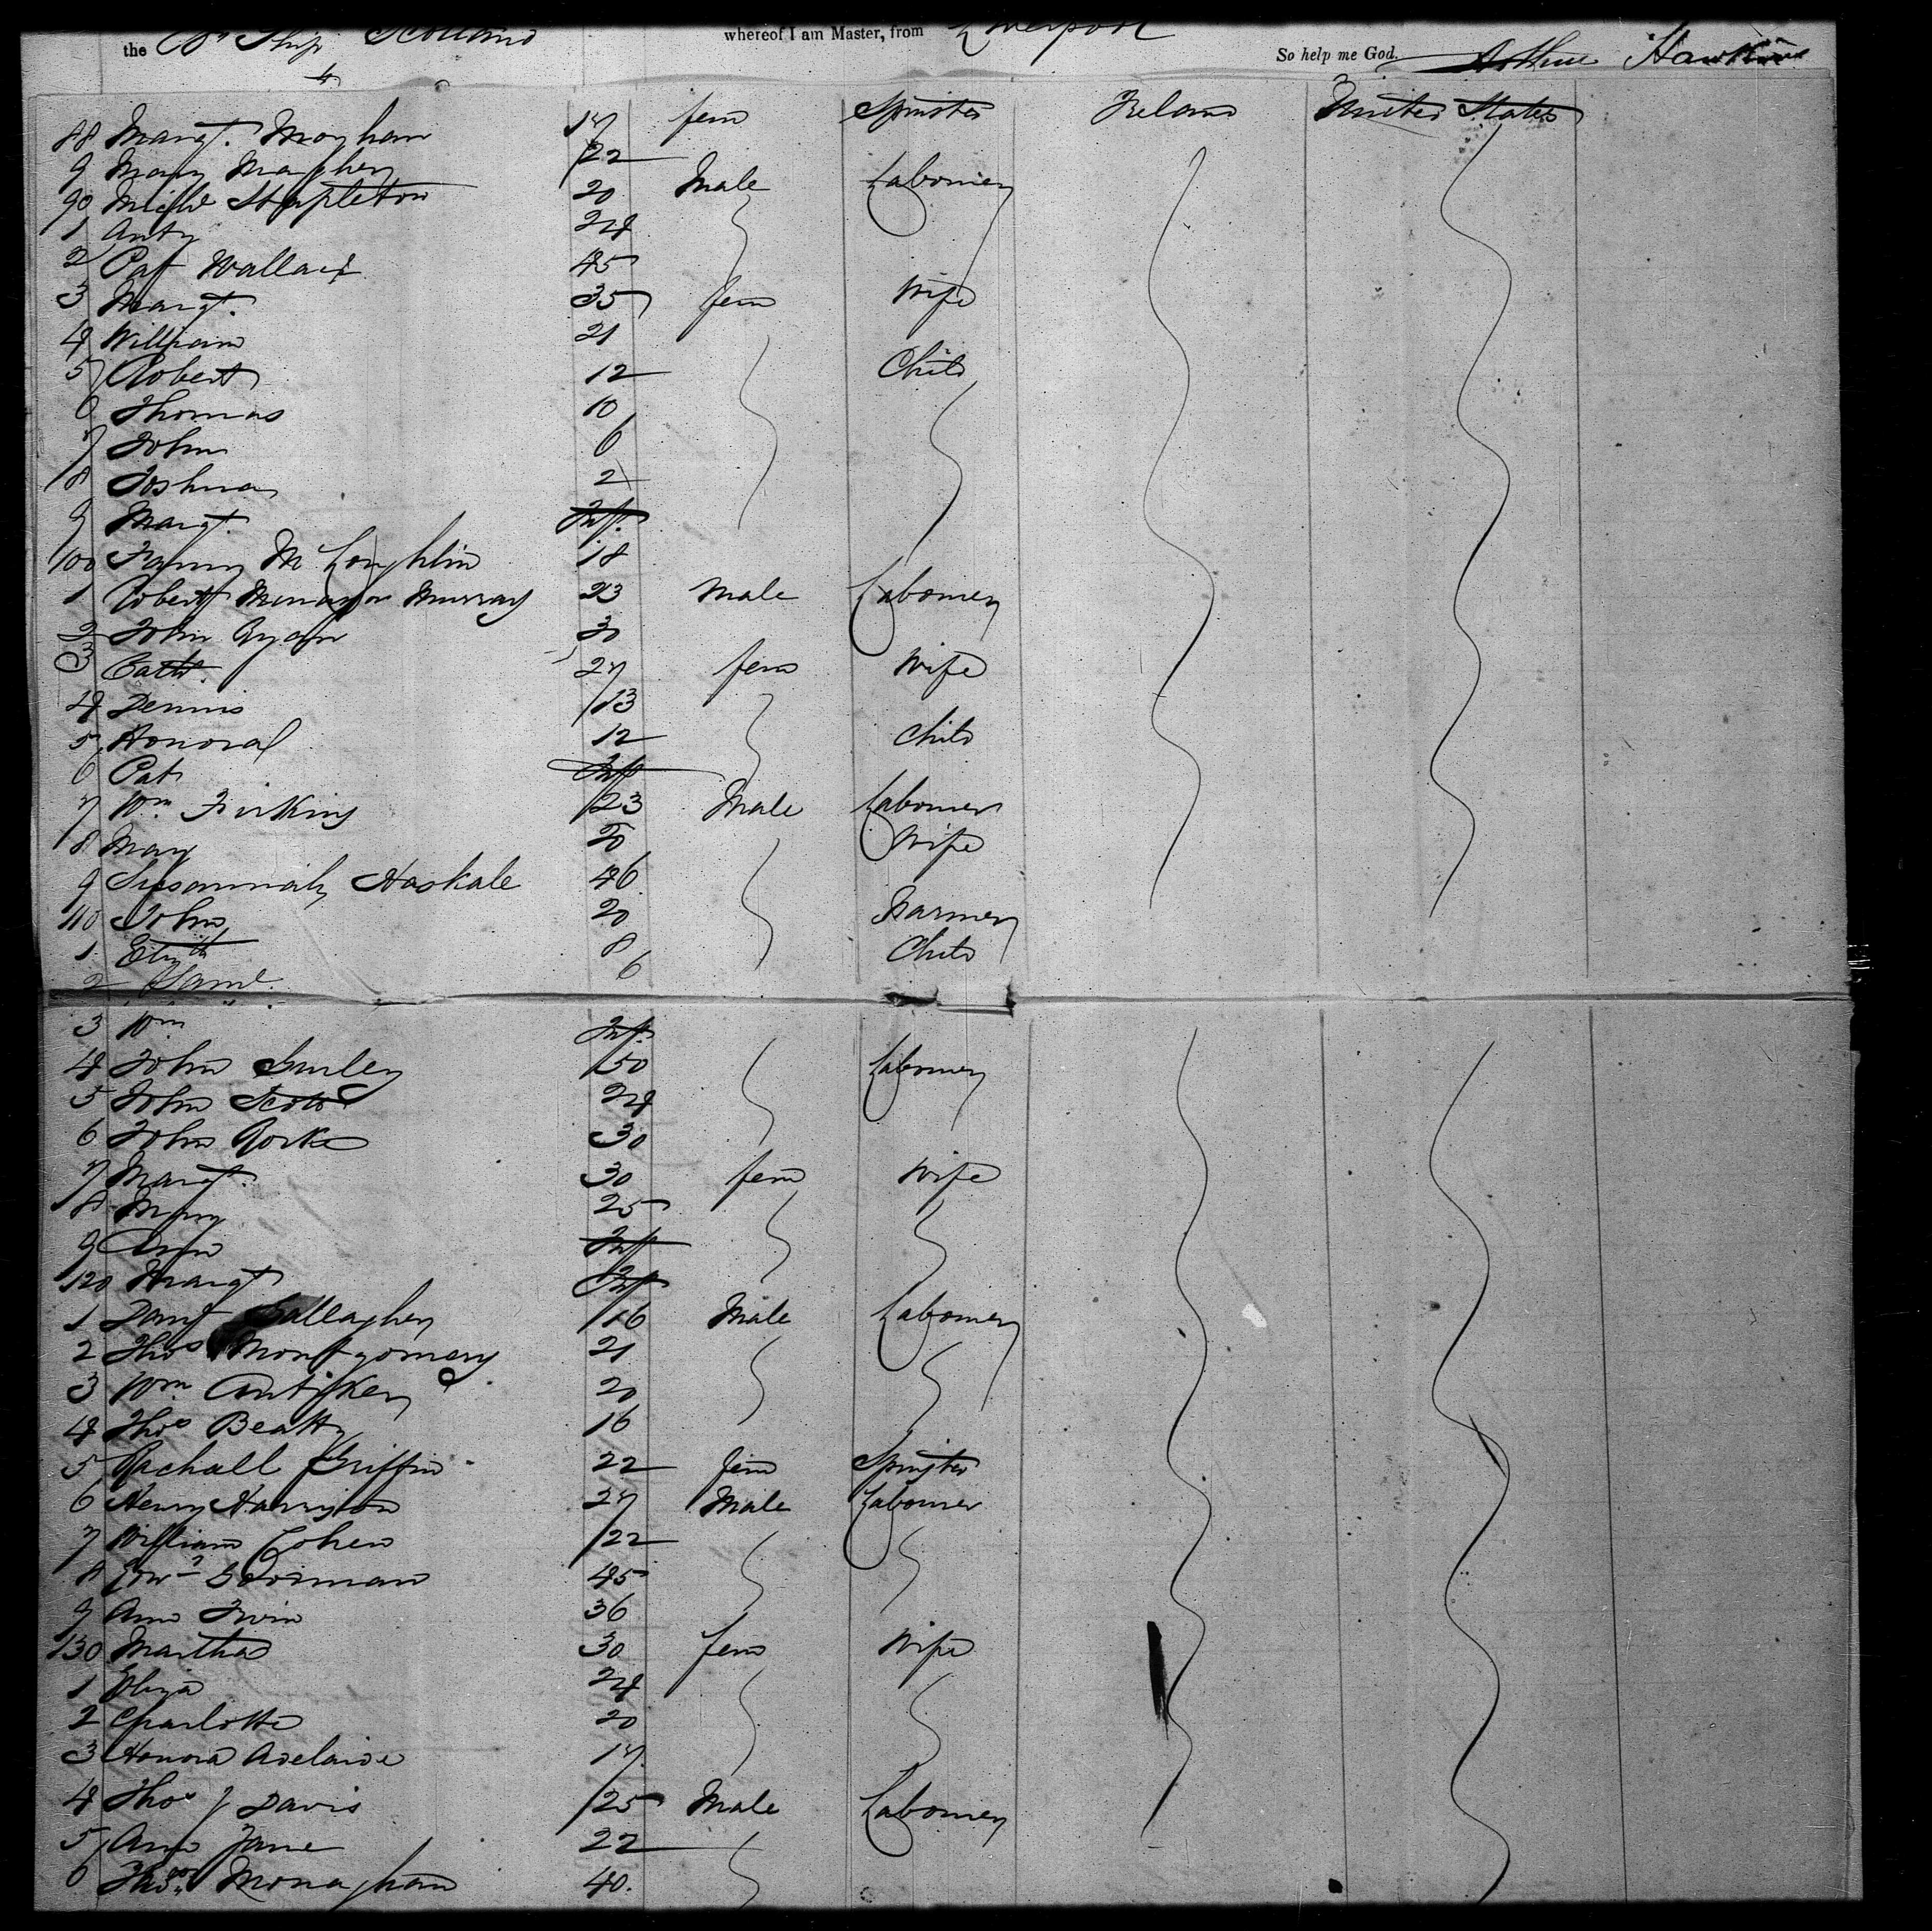 the Br Ship Scotland whereof I am Master, from Liverpool
So help me God. Arthur Hawkins
88 Margt. 17 fem Spinster Ireland United States
9 Mary 22
90 Michl Stapleton 20 Male Labourer
1 Anty 24
2 Pat Wallace 45
3 Margt. 35 fem Wife
4 William 21
5 Robert 12 Child
6 Thomas 10
7 John 6
8 Joshua 2
9 Margt. Inft.
100 Fanny McLoughlin 18
1 Robert Murray 23 Male Labourer
2 John Ryan 30
3 Cathe. 27 fem Wife
4 Dennis 13
5 Honora 12 Child
6 Pat Inft
7 Wm Firkins 23 Male Labourer
8 Mary 20 Wife
9 Susannah Haskale 46
110 John 20 Farmer
1 Elizth 8 Child
2 Saml. 6
3 Wm Inft.
4 John Gurley 50 Labourer
5 John Scott 24
6 John Rorke 30
7 Margt. 30 fem Wife
8 Mary 25
9 Ann Inft
120 Margt Inft
1 Danl Gallagher 16 Male Labourer
2 Thos Montgomery 21
3 Wm 20
4 Thos Beatty 16
5 Rachall Griffin 22 fem Spinster
6 Henry Harrison 27 Male Labourer
7 William Cohen 22
8 45
9 Ann Irwin 36
130 Martha 30 fem Wife
1 Eliza 24
2 Charlotte 20
3 Honora Adelaide 17
4 Thos J Davis 25 Male Labourer
5 Ann Jane 22
6 Thos Monaghan 40.